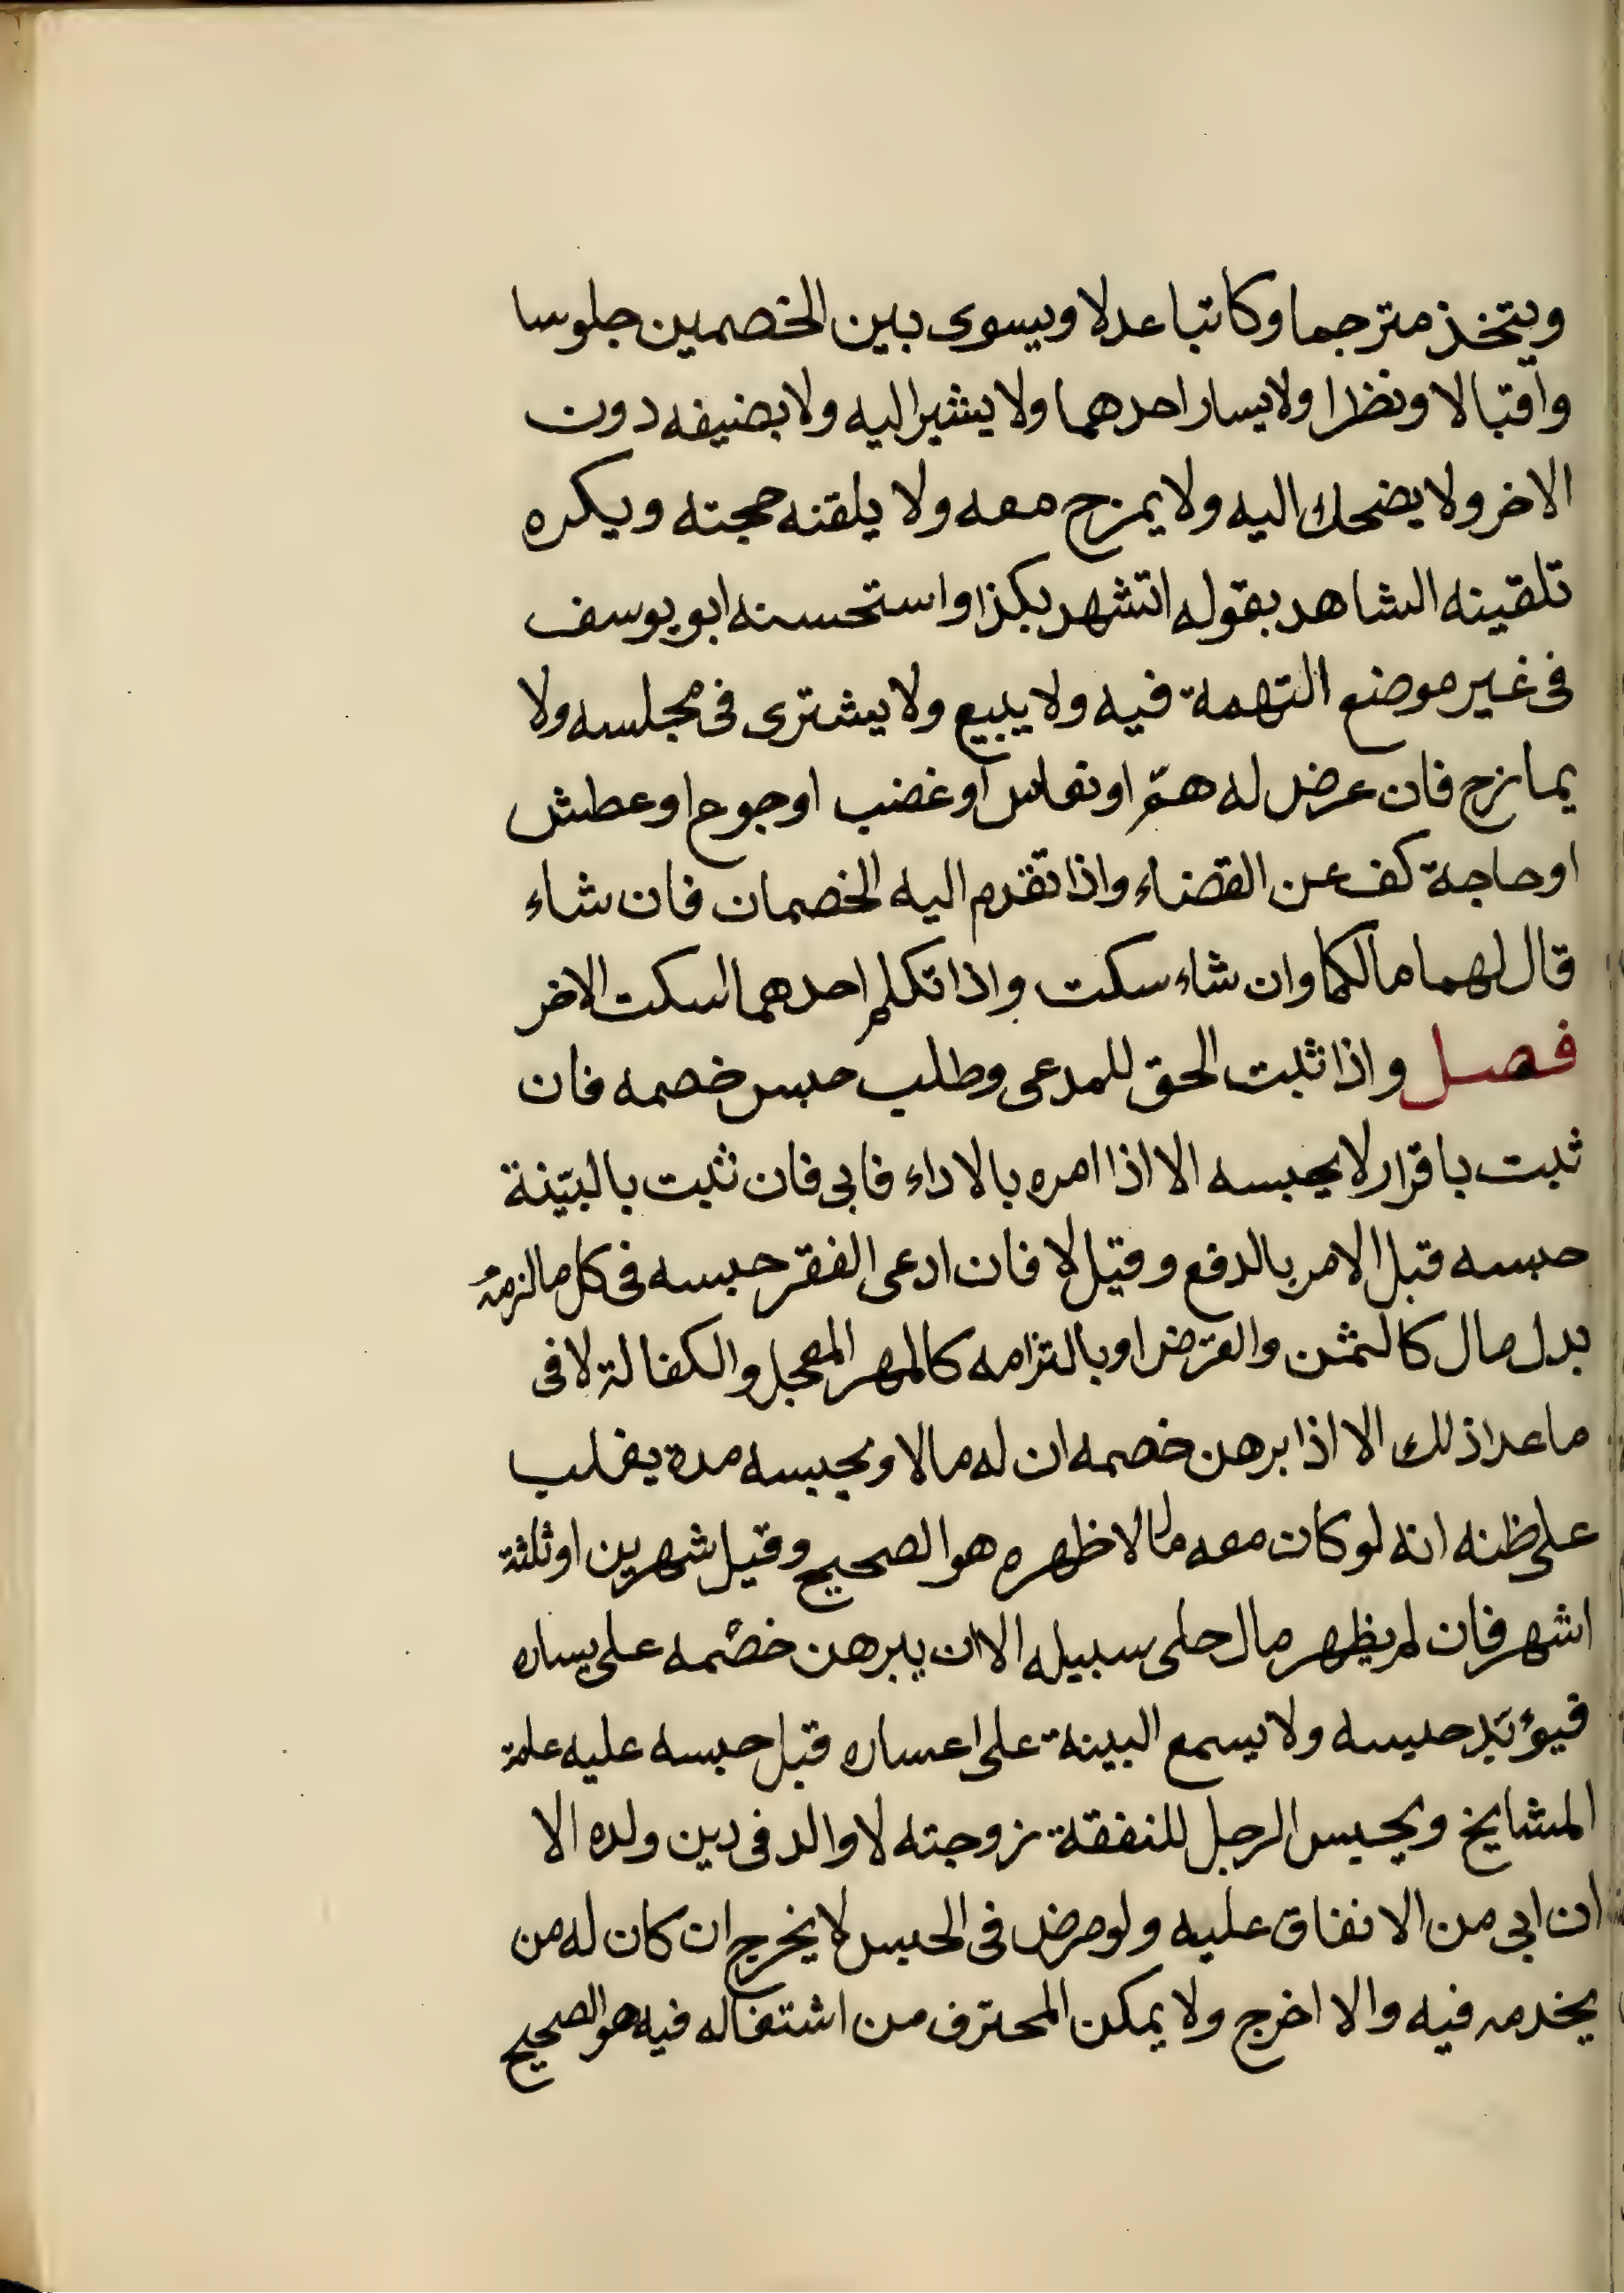 ويتخذ مترجما وكاتبا عدلا ويسوى بين الخصمين جلوسا
واقبالا ونظرا ولا يسار احدهما ولا يشير اليه ولا يضيفه دون
الاخر ولا يضحك اليه ولا يمزح معه ولا يلقنه حجته ويكره
تلقينه الشاهد بقوله اتشهد بكذا واستحسنه ابو يوسف
فى غير موضع التهمة فيه ولا يبيع ولا يشترى فى مجلسه ولا
يمازح فان عرض له همّ او نعاس او غضب او جوع او عطش
او حاجة كف عن القضاء واذا تقدم اليه الخصمان فان شاء
قال لهما مالكما وان شاء سكت واذا تكلم احدهما اسكت الاخر
فصل واذا ثبت الحق للمدعى وطلب حبس خصمه فان
ثبت باقرار لا يحبسه الا اذا امره بالاداء فابى فان ثبت بالبيّنة
حبسه قبل الامر بالدفع وقيل لا فان ادعى الفقر حبسه فى كل مالزمه
بدل مال كالثمن والقرض او بالتزامه كالمهر المعجل والكفالة لا فى
ما عدا ذلك الا اذا برهن خصمه ان له مالا ويحبسه مدة يغلب
على ظنه انه لو كان معه مالا لاظهره هو الصحيح وقيل شهرين او ثلثة
اشهر فان لم يظهر مال خلى سبيله الا ان يبرهن خصمه على يساره
فيؤبّد حبسه ولا يسمع البينة على اعساره قبل حبسه عليه عامة
المشايخ ويحبس الرجل للنفقة زوجته لا والد فى دين ولده الا
ان ابى من الانفاق عليه ولو مرض فى الحبس لا يخرج ان كان له من
يخدمه فيه والا اخرج ولا يمكن المحترف من اشتغاله فيه هو الصحيح